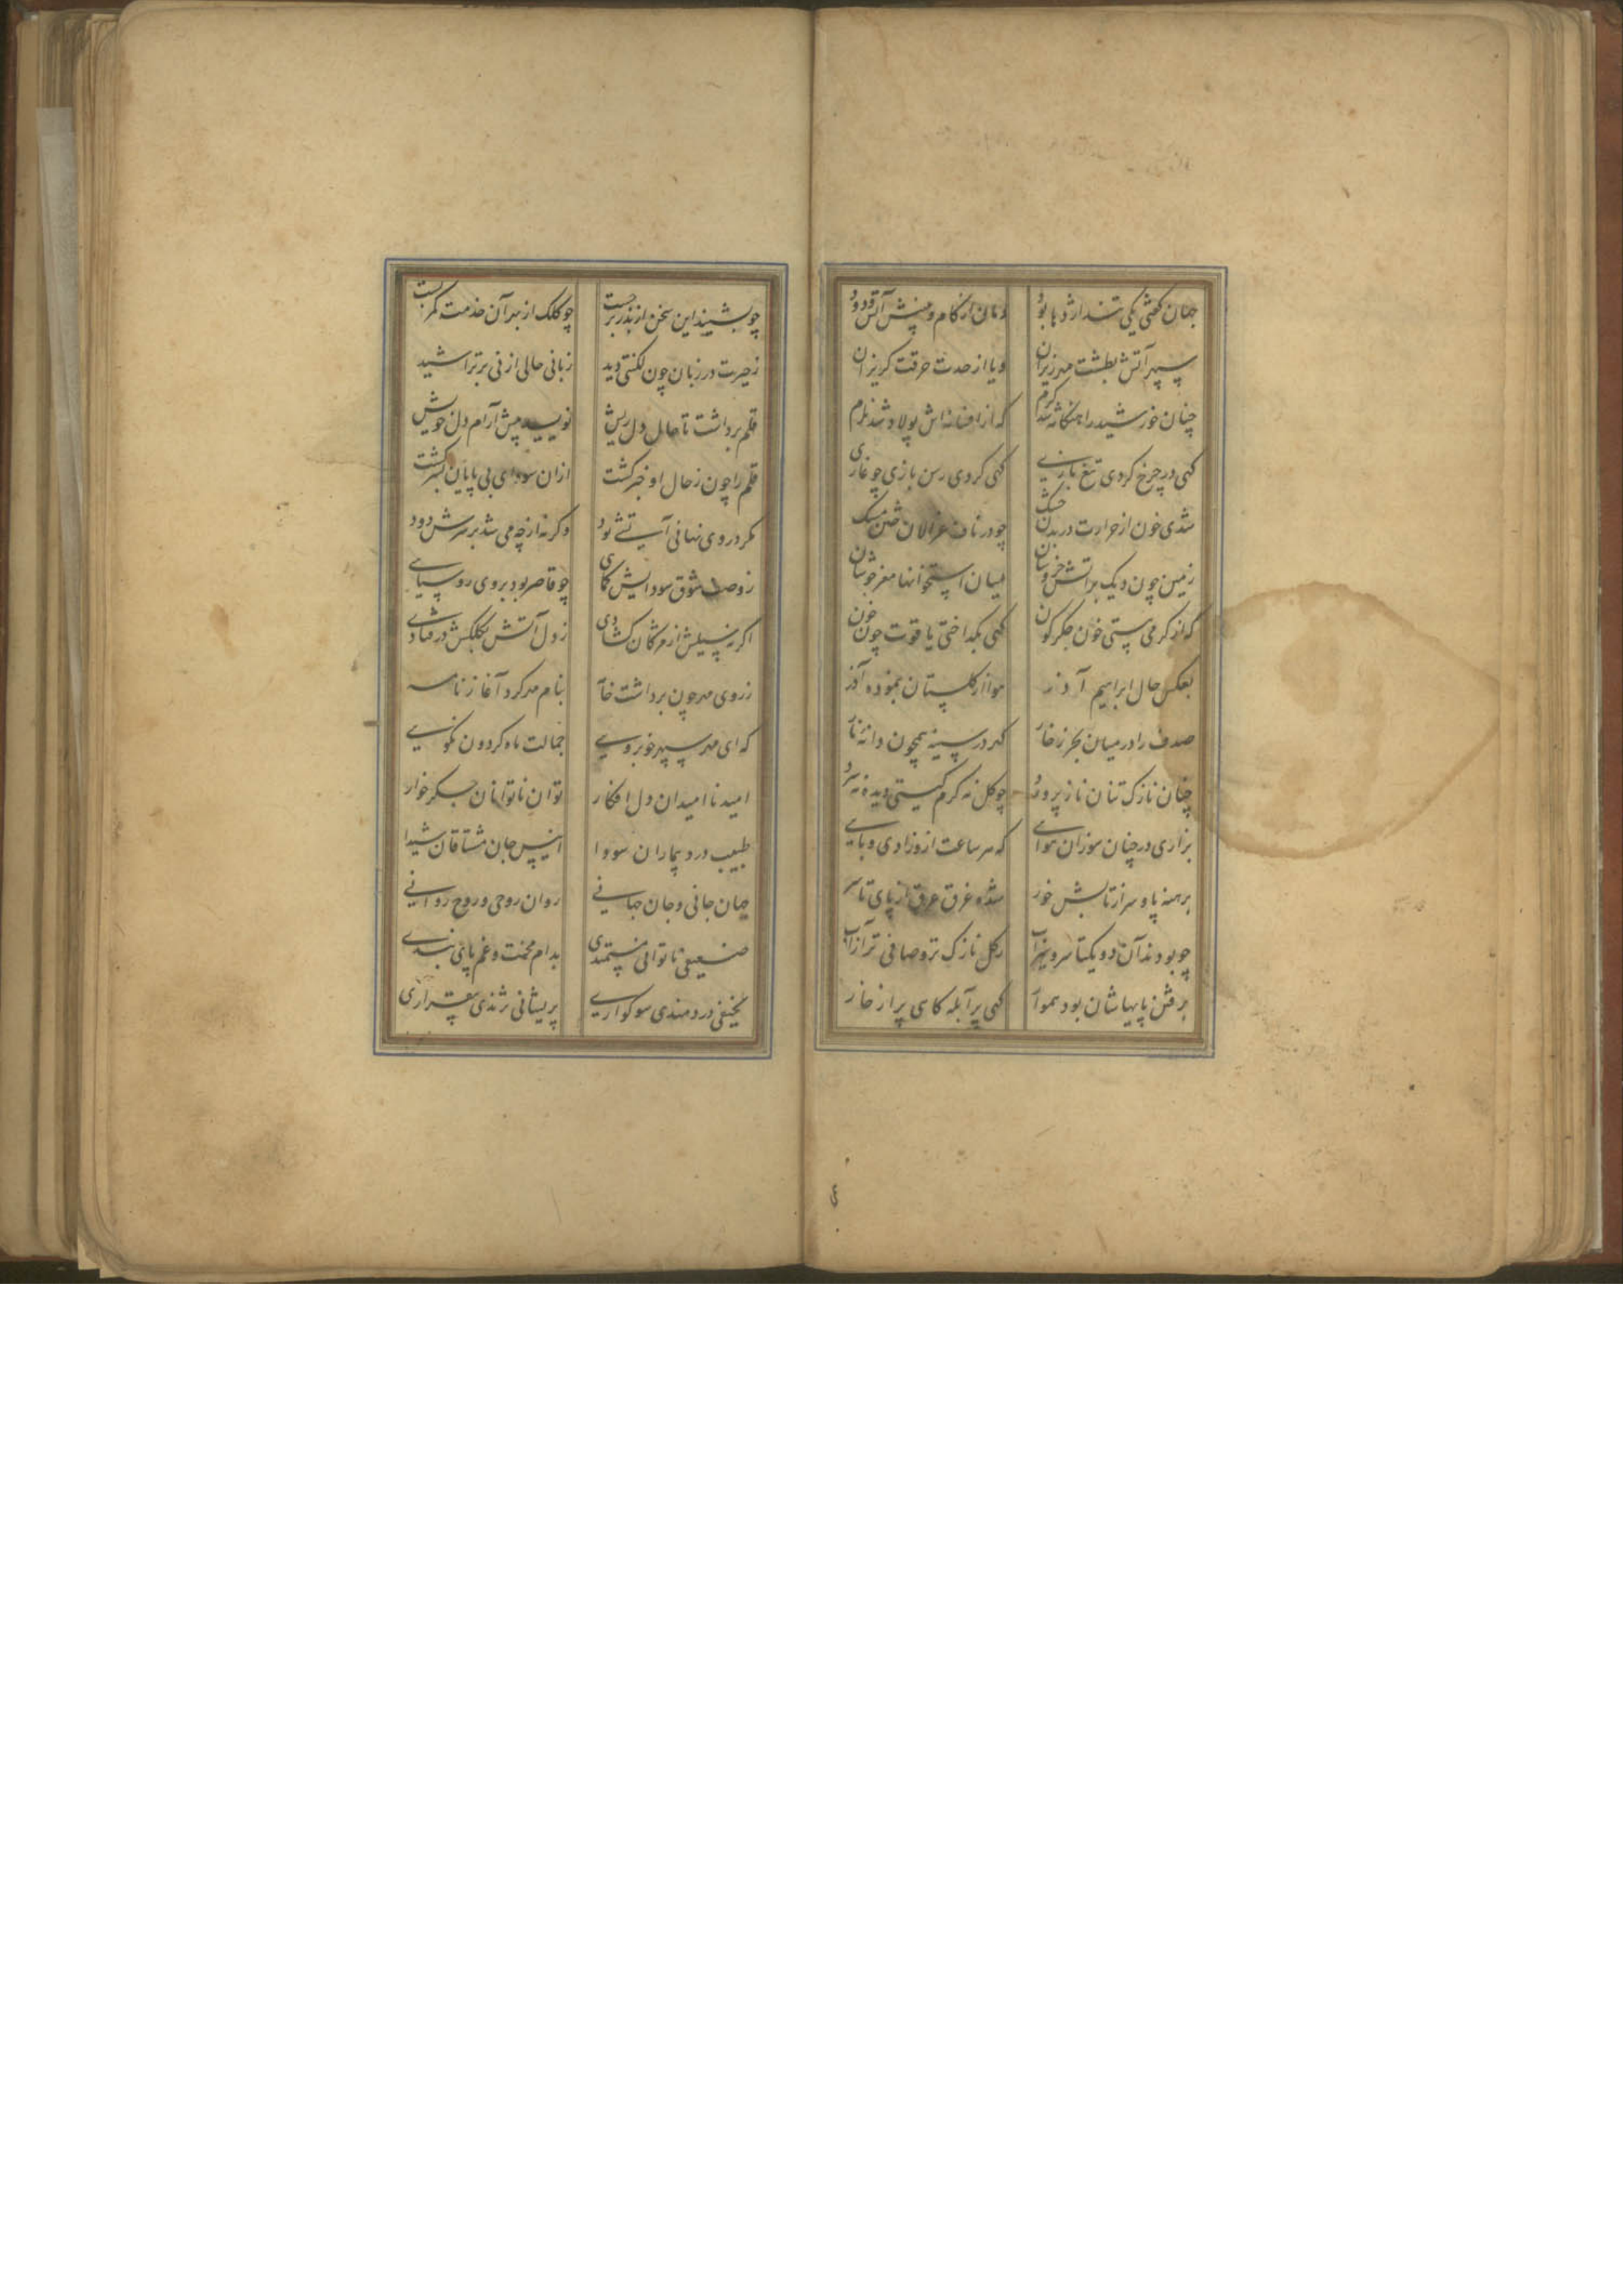 جهان گفتی یکی تند اژدها بود دمان از کام و بینیش آتش و دود
سپهر آتش بطشت مهر ریزان وبا از حدت حرقت گریزان
چنان خورشید را هنگامه شد گرم که از افسانه‌اش پولاد شد نرم
گهی در چرخ کردی تیغ بازی گهی کردی رسن بازی چو غازی
شدی خون از حرارت در بدن خشک چو در ناف غزالان ختن مشک
زمین چون دیک بر آتش خروشان میان استخوانها مغز جوشان
که از گرمی ببستی خون جگرگون گهی بگداختی یاقوت چون خون
بعکس حال ابراهیم آذر هوا از گلستان بنموده آذر
صدف را در میان بحر زخار گهر در سینه همچون دانه نار
چنان نازک تنان ناز پرورد چو گل نه گرم گیتی دیده نه سرد
بزاری در چنان سوزان هوای که هر ساعت ازو زادی وبای
برهنه پا و سر از تابش خور شده غرق عرق از پای تا سر
چو بودند آن دو یکتا سرو سیراب ز گل نازک‌تر و صافی‌تر از آب
برفتن پایهاشان بود هموار گهی پر آبله گاهی پر از خار
چو بشنید این سخن از بدر برجست چو کلک از بهر آن خدمت کمر بست
ز حیرت در زبان چون لکنتی دید زبانی حالی از نی بر تراشید
قلم برداشت تا حال دل ریش نویسد پیش آرام دل خویش
قلم را چون ز حال او خبر گشت از آن سودای بی پایان بسر گشت
مگر در وی نهانی آتشی بود وگرنه از چه می شد بر سرش دود
ز وصف شوق سودایش کمای چو قاصر بود بروی روسیاهی
اگر نه سیلش از مژگان گشادی ز دل آتش بکلکش در فتادی
ز روی مهر چون برداشت خامه بنام مهر کرد آغاز نامه
که ای مهر سپهر خوبروی جمالت ماه گردون نکوی
امید ناامیدان دل افکار توان ناتوانان جگرخوار
طبیب درد بیماران سودا انیس جان مشتاقان شیدا
جهان جانی و جان جهانی روان روحی و روح روانی
ضعیفی ناتوانی مستمندی بدام محنت و غم پای بندی
نحیفی دردمندی سوگواری پریشانی نژندی بیقراری